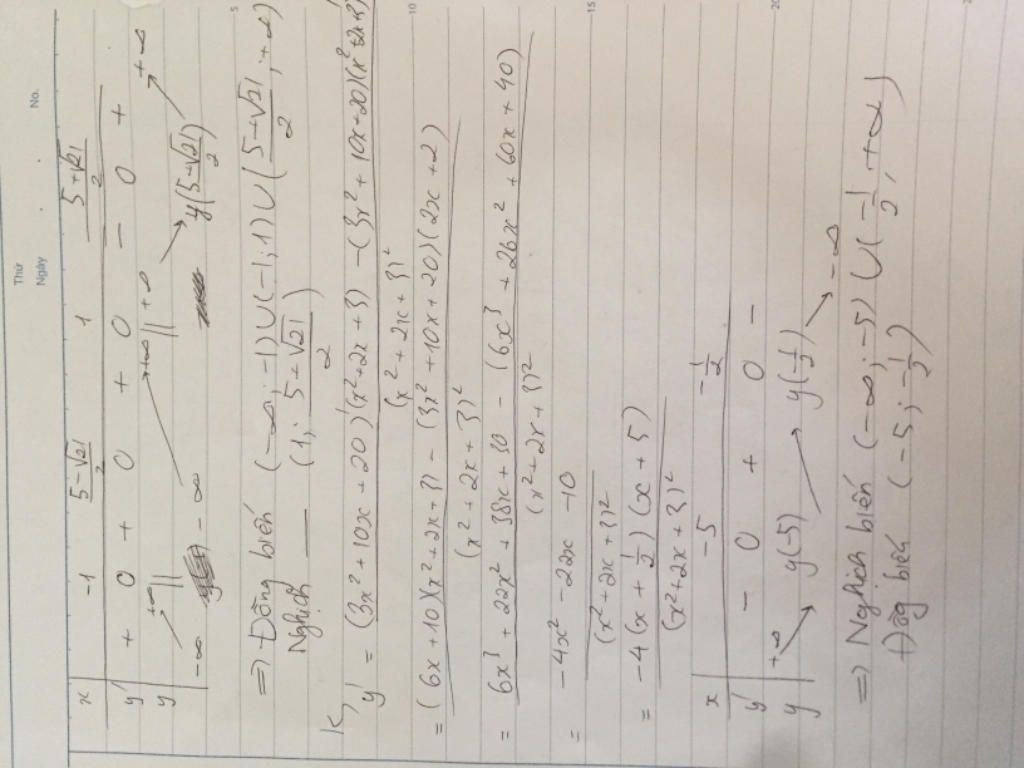 Thứ
Ngày No.
x -1 5-√21/2 1 5+√21/2
y' + 0 + 0 + 0 - 0 +
y -∞ +∞ || -∞ +∞ || +∞ y(5+√21/2) +∞
=> Đồng biến (-∞; -1) ∪ (-1; 1) ∪ (5+√21/2; +∞)
Nghịch — (1; 5+√21/2)
K)
y' = (3x² + 10x + 20)'(x² + 2x + 3) - (3x² + 10x + 20)(x² + 2x + 3)' / (x² + 2x + 3)²
= (6x + 10)(x² + 2x + 3) - (3x² + 10x + 20)(2x + 2) / (x² + 2x + 3)²
= 6x³ + 22x² + 38x + 30 - (6x³ + 26x² + 60x + 40) / (x² + 2x + 3)²
= -4x² - 22x - 10 / (x² + 2x + 3)²
= -4(x + 1/2)(x + 5) / (x² + 2x + 3)²
x -5 -1/2
y' - 0 + 0 -
y +∞ y(-5) y(-1/2) -∞
=> Nghịch biến (-∞; -5) ∪ (-1/2; +∞)
Đồg biến (-5; -1/2)
5
10
15
20